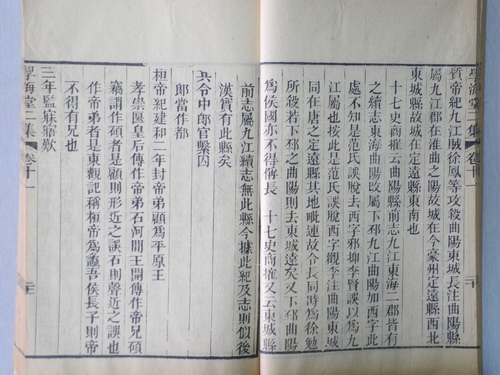 學海堂二集
卷十一
二十
質帝紀九江賊徐鳳等攻殺曲陽東城長注曲陽縣
屬九江郡在淮曲之陽故城在今豪州定遠縣西北
東城縣故城在定遠縣東南也
十七史商榷云曲陽縣前志九江東海二郡皆有
之續志東海曲陽改屬下邳九江曲陽加西字此
處不知是范氏誤脫西字邪抑李賢誤以爲九
江屬也按此是范氏誤脫西字觀李注曲陽與
同在唐之定遠縣其地毗連故令長同時爲徐勉
所殺若下邳之曲陽則去東城遠矣又下邳之曲陽
爲侯國亦不得偁長 十七史商榷又云東城縣
前志屬九江續志無此縣今據此紀及志則似後
漢實有此縣矣
兵令中郎官繫囚
郎當作都
桓帝紀建和二年封帝弟顧爲平原王
孝崇匽皇后傳作帝弟石河閒王開傳作帝兄碩
竊謂作碩者是顧則形近之誤石則聲近之誤也
作帝弟者是東觀記稱桓帝爲蠡吾侯長子則帝
不得有兄也
三年監寐寤歎
學海堂二集
卷十一